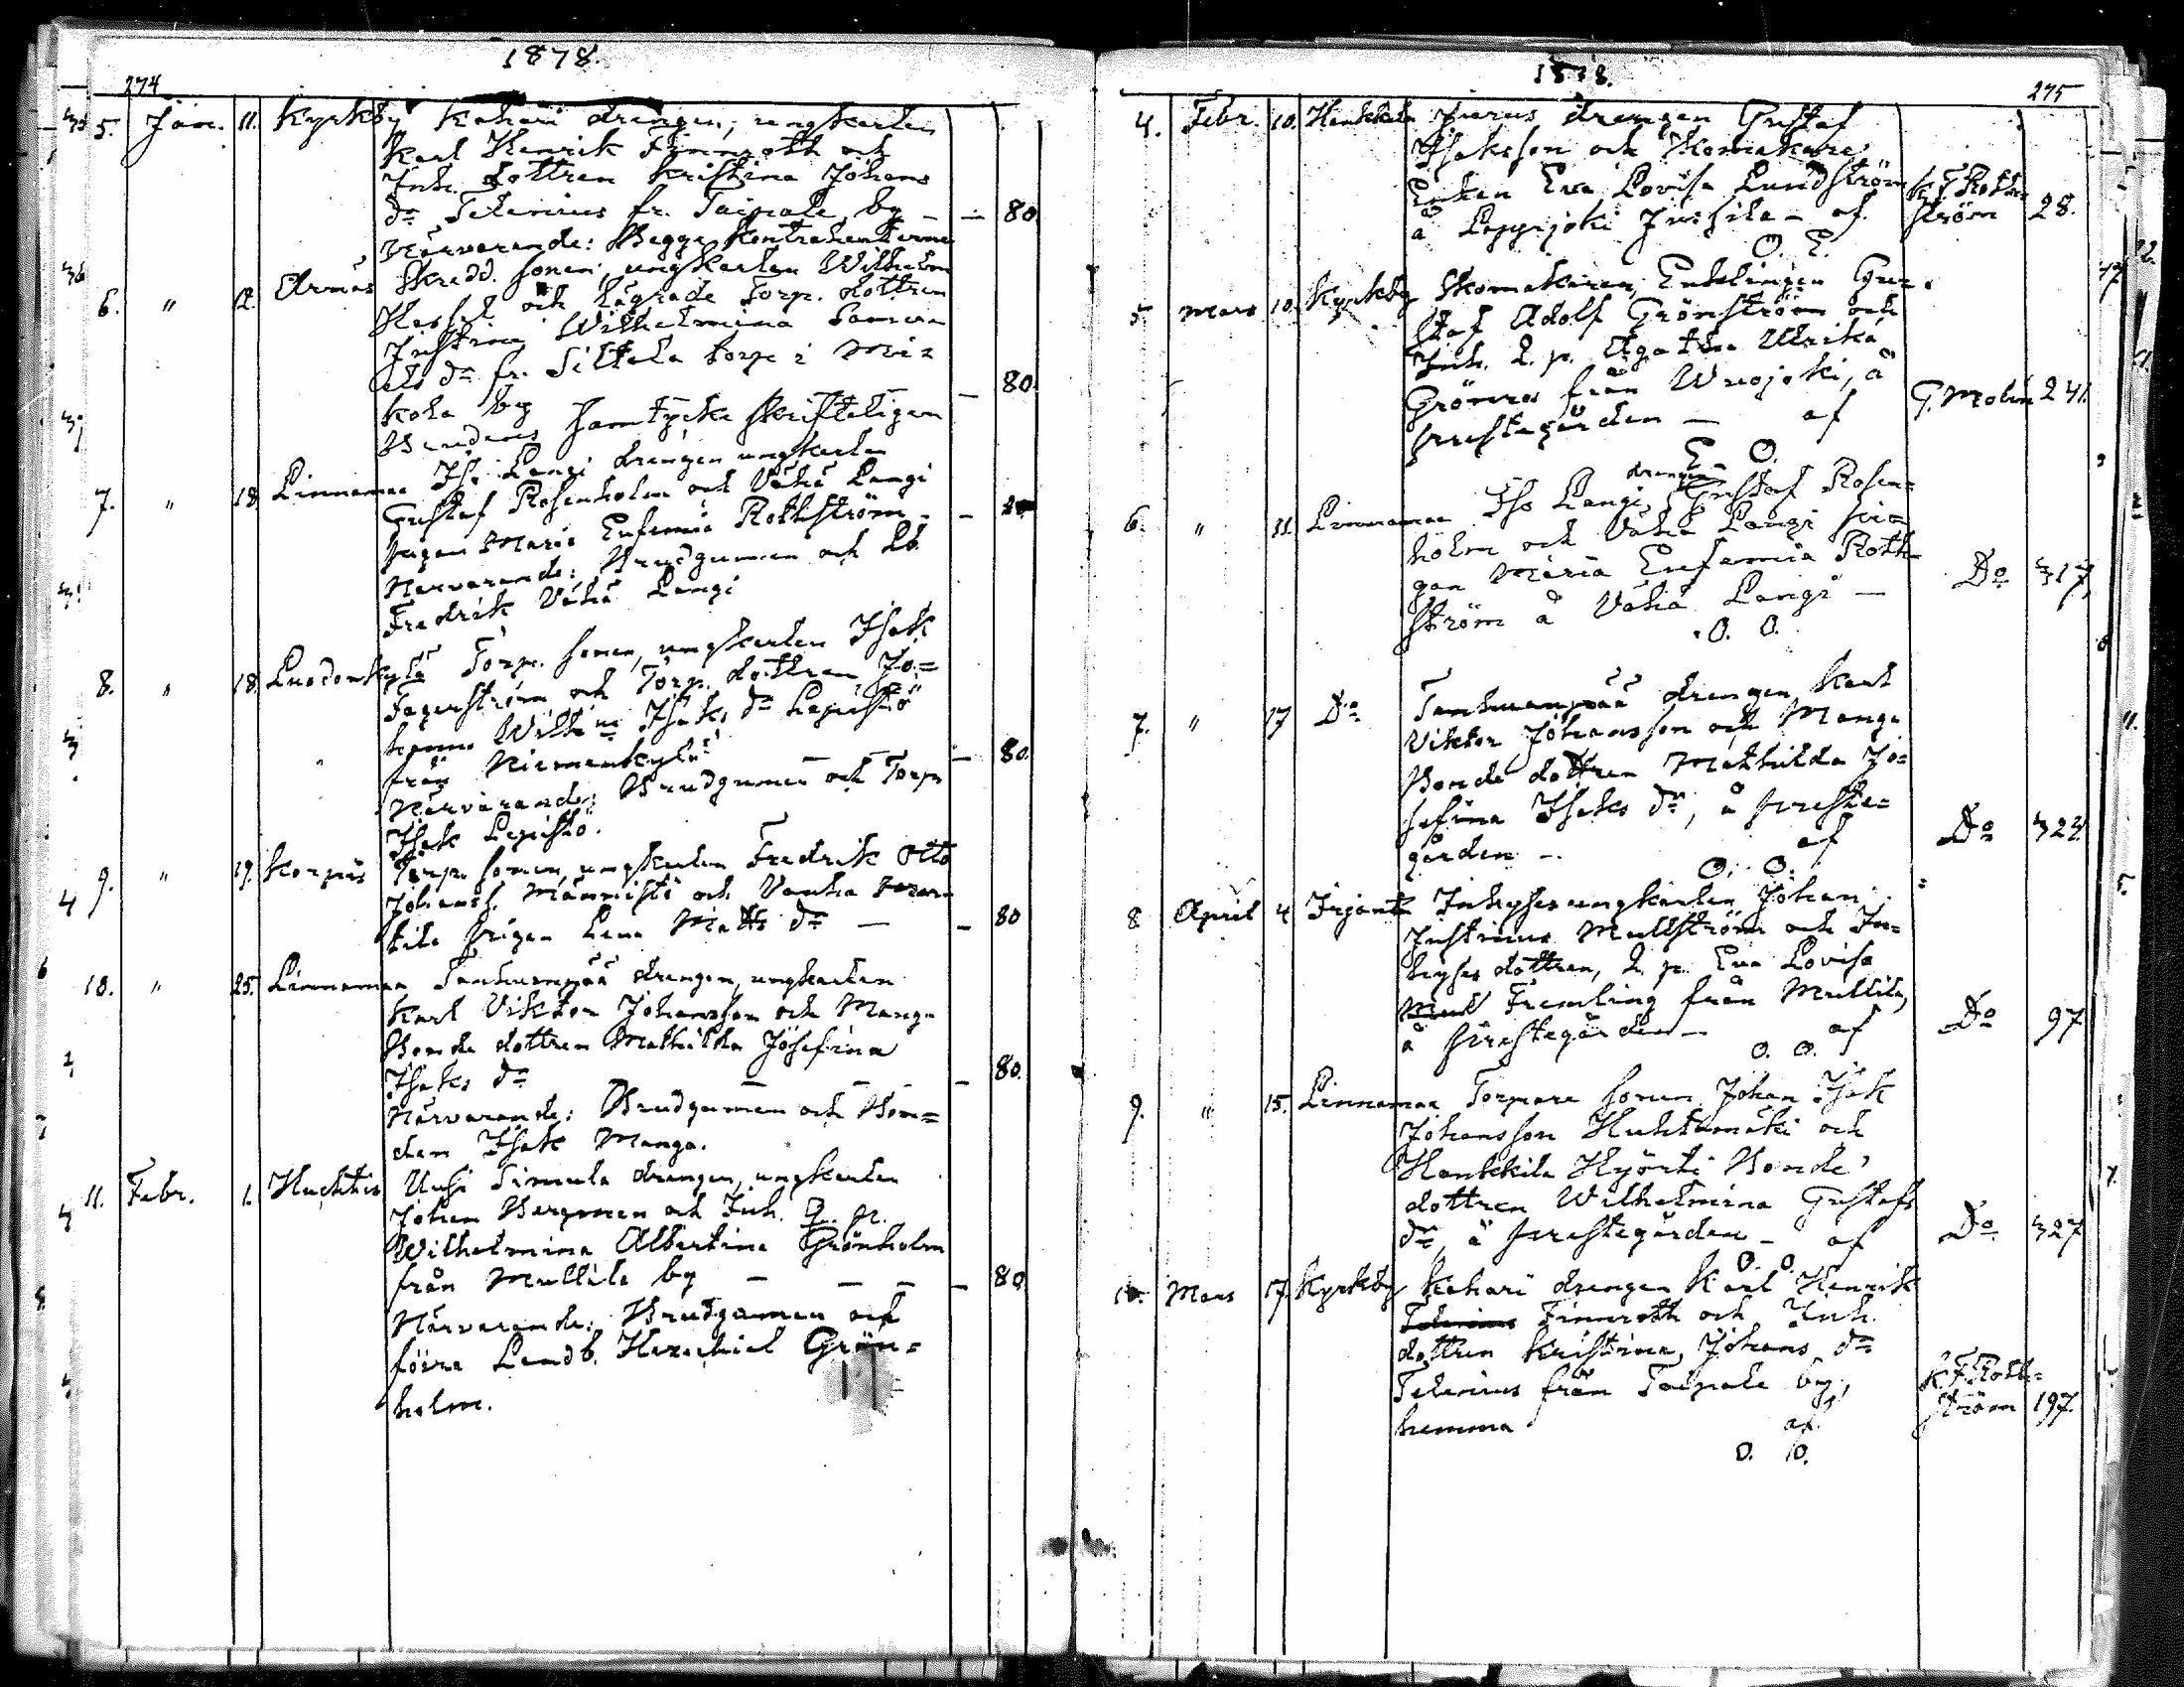 1878.
274
5. Jan. 11. Kyrkby Kahari drengen, ungkarlen
Karl Henrik Finnroth och
Inh. dottren Kristina Johans
dr Telenius fr. Taipale by — — 80
Närvarande: Begge Kontrahenterne
6. " 12. Arnäs Skredd. sonen, ungkarlen Wilhelm
Hessel och Lägrade Torp. dottren
Justina Wilhelmina
dr fr. Siltala torp i
kola by — 80.
Brudens samtycke skrifteligen
7. " 18. Linnamaa Iso Langi drengen ungkarlen
Gustaf Rosenholm och Vähä Langi
pigan Maria Eufemia Rothström — —
Närvarande: Brudgummen och Lb.
Fredrik Vähä Langi
8. " 18. Luodonkylä Torp. sonen, ungkarlen Isak
Fagerström och Torp. dottren Jo=
hanna Wilhna Isaks dr Lepistö
från Niemenkylä — — 80.
Närvarande: Brudgumen och Torp
Isak Lepistö.
9. " 19. Korpis Torp. sonen, ungkarlen Fredrik Otto
Johanss. Männistö och Vanha
tila pigan Lena Matts dr — — 80
10. " 25. Linnamaa Tanhuanpää drengen, ungkarlen
Karl Viktor Johansson och Manga
Bonde dottren Mathilda Josefina
Isaks dr — — — — 80.
Närvarande: Brudgumen och Bon=
den Isak Manga.
11. Febr. 1. Huchtis Uusi Simula drengen, ungkarlen
Johan Bergman och Inh. q. p.
Wilhelmina Albertina Grönholm
från Mullila by — — — — 80
Närvarande: Brudgummen och
förre Landb. Hezechiel Grön=
holm.
1878.
275
4. Febr. 10. Hankkila Jurus drengen Gustaf
Isaksson och Skomakare
Enkan Eva Lovisa Lundström
å Lappijoki Jussila — af K. F. Roth=
ström 28.
O. E.
5 Mars 10. Kyrkby Skomakaren, Enklingen Gus=
taf Adolf Grönström och
Inh. q. p. Agatha Ulrika
Grönroos från Wuojoki, å
prestegården — af G. Molin 241.
E. O.
6. " 31. Linnamaa Iso Langi drengen Gustaf Rosen=
holm och Vähä Langi pi=
gan Maria Eufemia Roth=
ström å Vähä Langi — Do 317,
O. O.
7. " 17 Do Tanhuanpää drengen Karl
Viktor Johansson och Manga
Bonde dottren Mathilda Jo=
sefina Isaks dr, å preste=
gården —. af Do 324.
O. O.
8 April 4 Irjanta Inhyses ungkarlen Johan
Justinus Mullström och In=
hyses dottren, q. p. Eva Lovisa
Fremling från Mullila,
å prestegården — af Do 97
O. O.
9. " 15. Linnamaa Torpare sonen Johan Isak
Johansson Huhtamäki och
Hankkila Hyörti Bonde
dottren Wilhelmina Gustafs
dr, å prestegården — af Do 327
O. O.
10. Mars 17 Kyrkby Kahari drengen Karl Henrik
Telenius Finnroth och Inh.
dottren Kristina, Johans dr
Telenius från Taipale by,
hemma af K. F. Roth=
ström 197.
O. O.